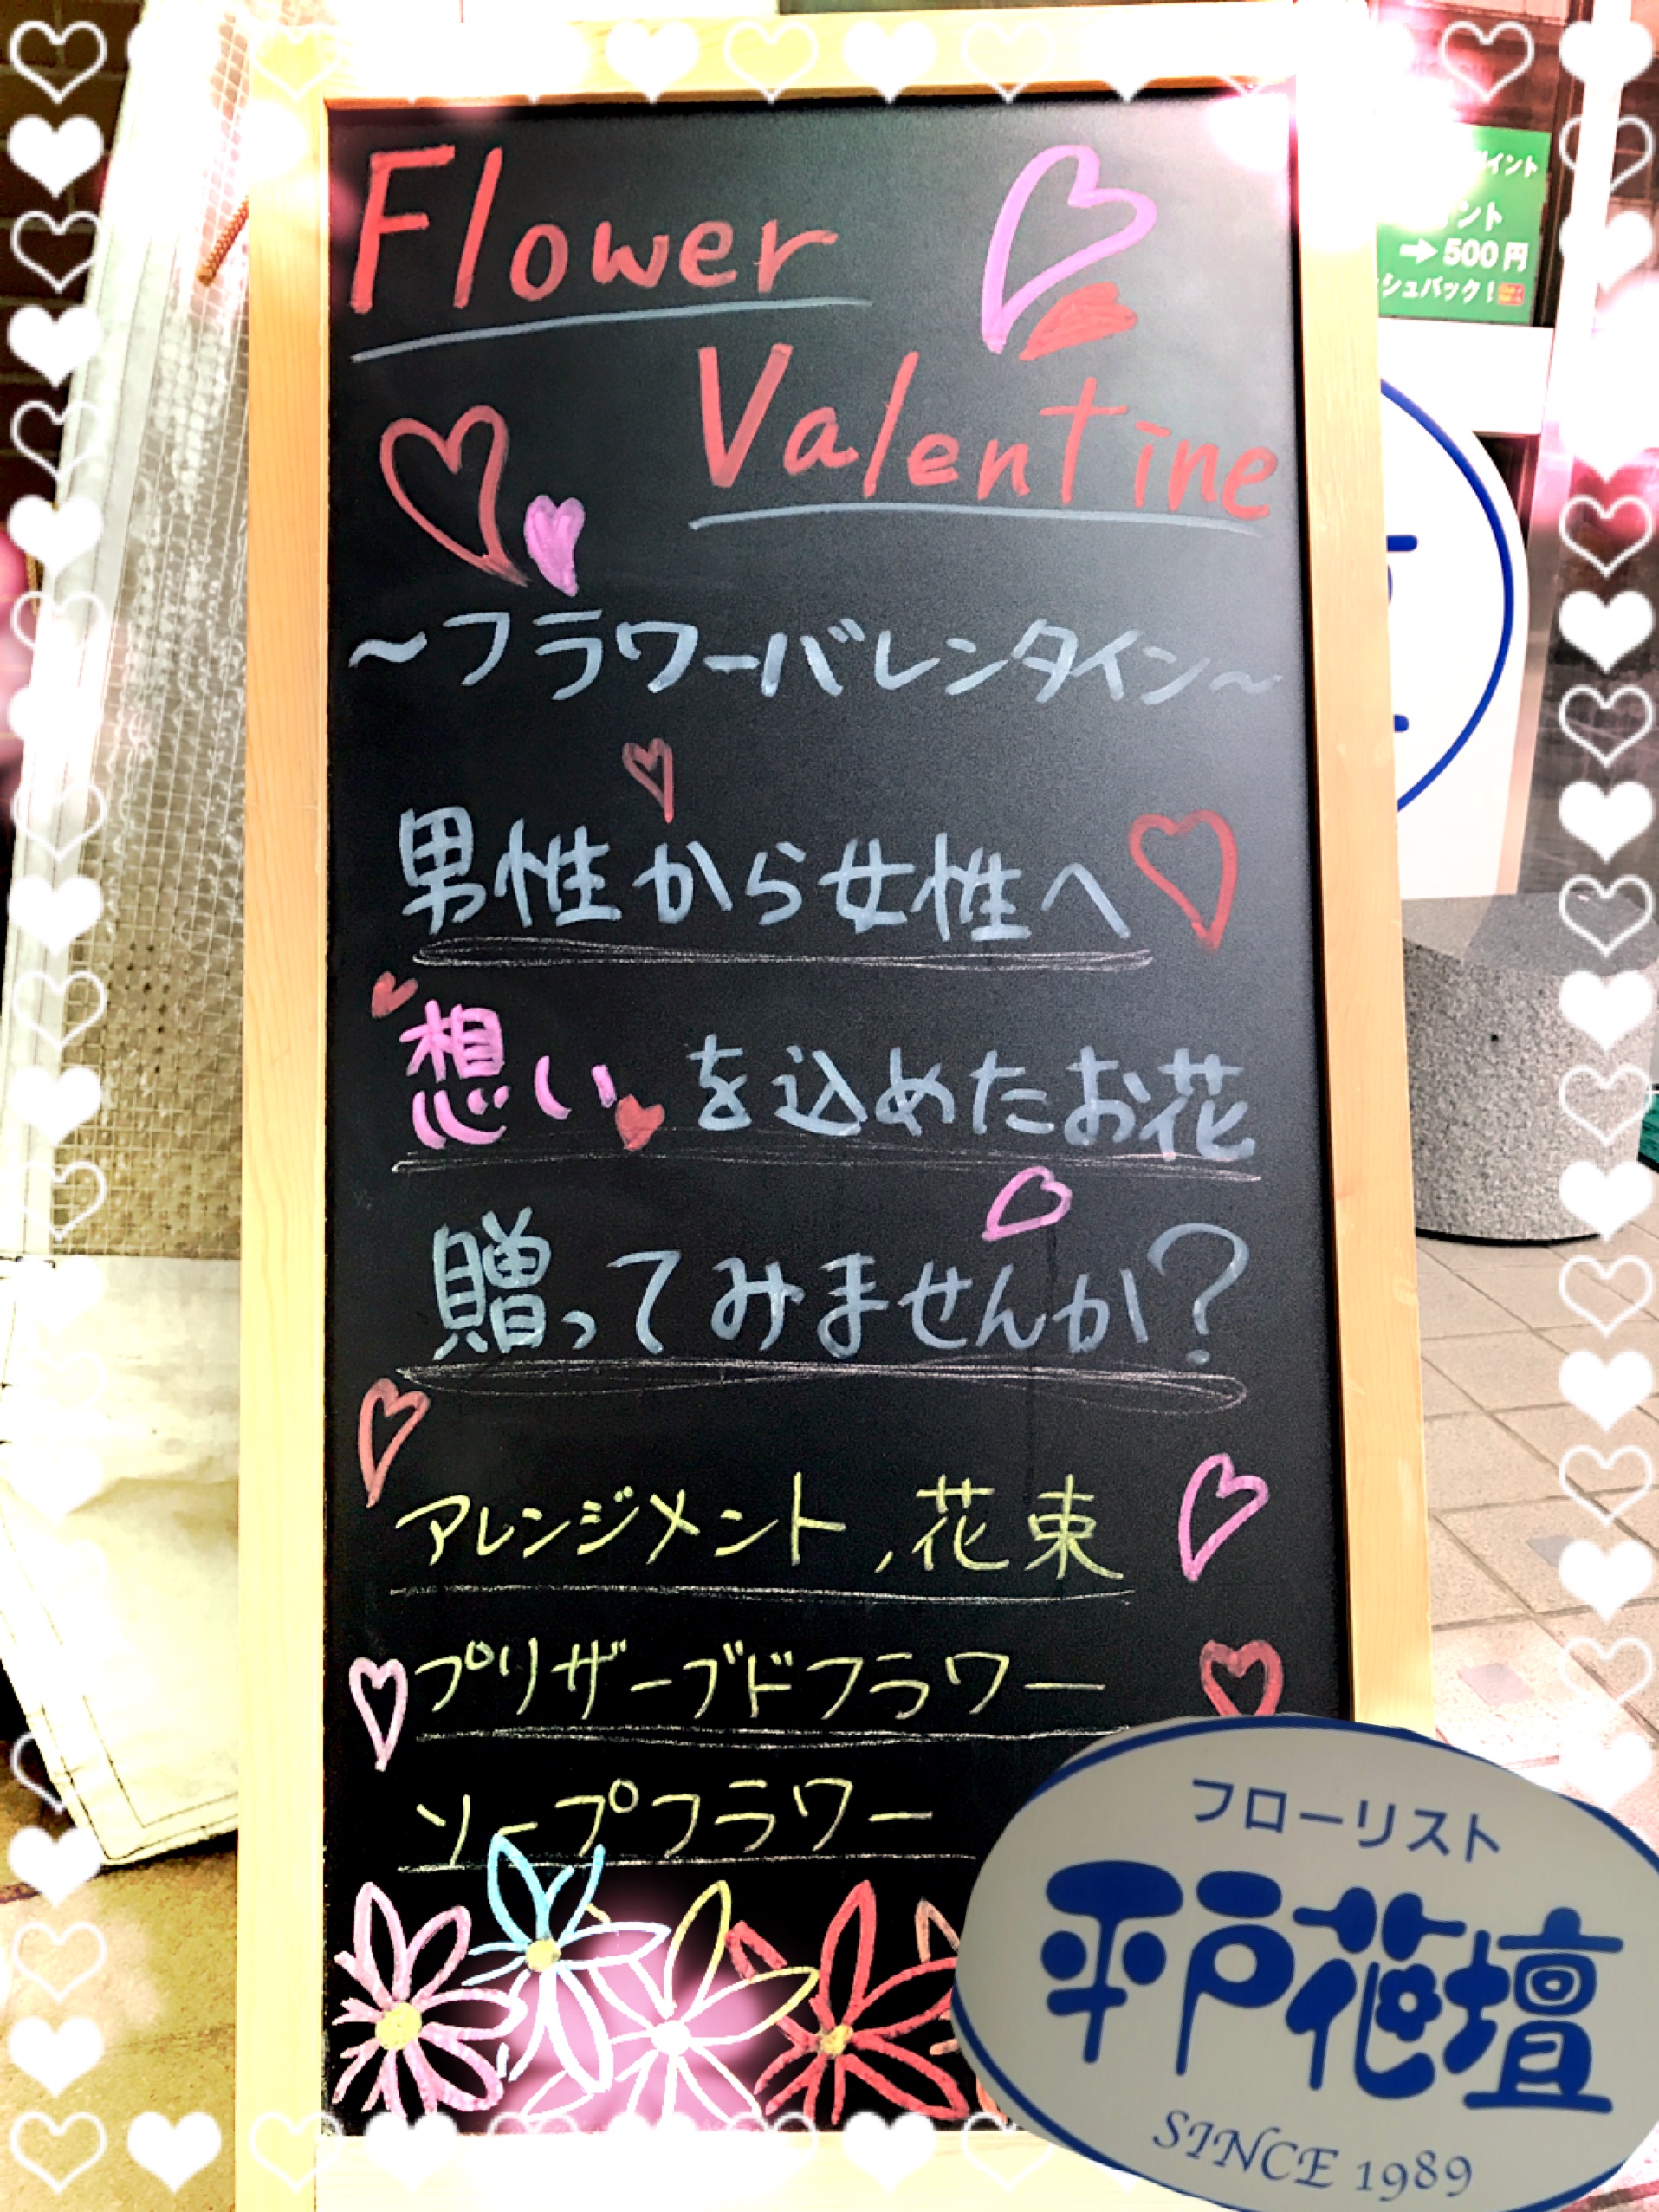 Flower
Valentine
～フラワーバレンタイン～
男性から女性へ
想いを込めたお花
贈ってみませんか?
アレンジメント,花束
プリザーブドフラワー
ソープフラワー
イント
ント
→500円
シュバック!
フローリスト
平戸花壇
SINCE 1989